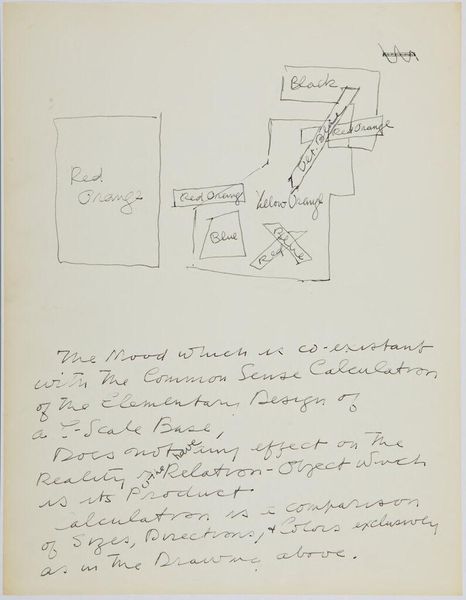 Black
Red Orange
Red
Orange
Red Orange
Yellow Orange
Blue
Blue
Red
The Mood which is co-existant
with the Common Sense Calculation
of the Elementary Design of
a -Scale Base,
Does not have any effect on the
Reality of the Relation-Object which
is its Product.
Calculation is a comparison
of Sizes, Directions, & Colors exclusively
as in the Drawing above.